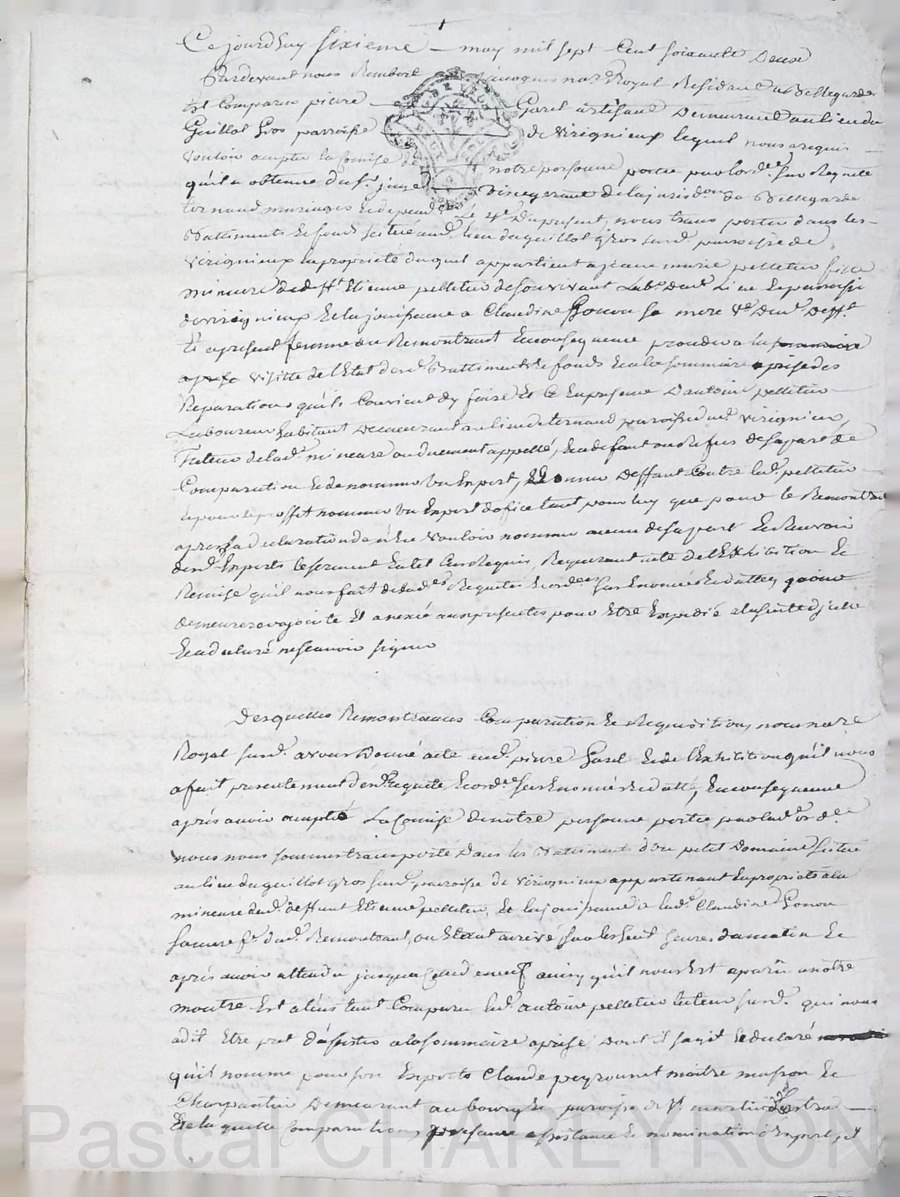 Ce jourd'huy sixieme may mil sept Cent soixante Deux
Pardevant nous Rambert Jacques no.re Royal Residant a Bellegarde
Est Comparu pierre Garel artisant Demeurant au lieu du
Guillot Gros parroisse de Virignieux lequel nous a requis
vouloir accepter la Comise de notre personne portée par lord.ce sur Requette
qu'il a obtenue du s.r juge de la jurisd.on de Bellegarde
ternand maringes et depend. le 4.e Du present, nous trans porter dans les
Battiments et fond scitue aud. lieu du guillot gros surd. parroisse de
virignieux la proprieté duquel appartient a jeanne marie pelletier fille
mineure de deff.t Etienne pelletier de son vivant Lab.r dud. Lieu et parroisse
de virignieux Et la jouissance a Claudine Gonon sa mere V.e Dud. Deff.t
Et a present femme du Remontrant En consequence proceder a la
visitte de l'Etat desd. Battiments et fonds Ecala sommaire aprise des
Reparations qu'il Convient dy faire Et Ce En presence D'antoine pelletier
Laboureur habitant Demeurant au lieu de ternand parroisse dud. virignieux
Tuteur de lad. mineure ou duement appellé, Et a defaut ou refus de sa part de
Comparution Et de nommer un Expert, donner Deffaut Contre led. pelletier
Et pour le proffit nommer un Expert d'office tant pour luy que pour le Remontrant
apres sa declaration de n'En vouloir nommer aucun de sa part Et Recevoir
desd. Experts le serment En tel Cas Requis, Requerant acte de l'Exhibition Et
Remise qu'il nous fait desd. Requette Et ord.ce sus Enoncés Et dattés pour
demeurer joints Et anexés aux presentes pour Etre Expedié a la suite d'icelle
Et a declaré ne scavoir signer
Desquelles Remontrances Comparution Et Requisition, nous no.re
Royal surd. avons Donné acte aud. pierre Garel Et de l'Exhibition qu'il nous
a fait presentement desd. Requette Et ord.ce sus Enoncés Et datt., En consequence
après avoir accepté La Comise De notre personne portée par lad. ord.ce
nous nous sommes transporté Dans les Battiments d'un petit Domaine Scitué
au lieu du guillot gros surd. parroisse de virignieux appartenant En proprieté a la
mineure dud. deffunt Etienne pelletier, Et la jouissance a lad. Claudine Gonon
sa mere f.e dud. Remontrant, ou Etant arrivé sur les huit heures du matin Et
après avoir attendu jusqu'a Celle de neuf ainsy qu'il nous Est aparu a notre
montre Est a l'instant Comparu led. antoine pelletier tuteur surd. qui nous
a dit Etre pret d'assister a la sommaire aprise Dont il sagit Et declaré
qu'il nomme pour son Experts Claude peyronnet maitre masson Et
Charpentier Demeurant au bourg Et parroisse de S.t martin Lestra
De laquelle Comparution presence assistance Et nomination d'Expert, et
Pascal CHAREYRON